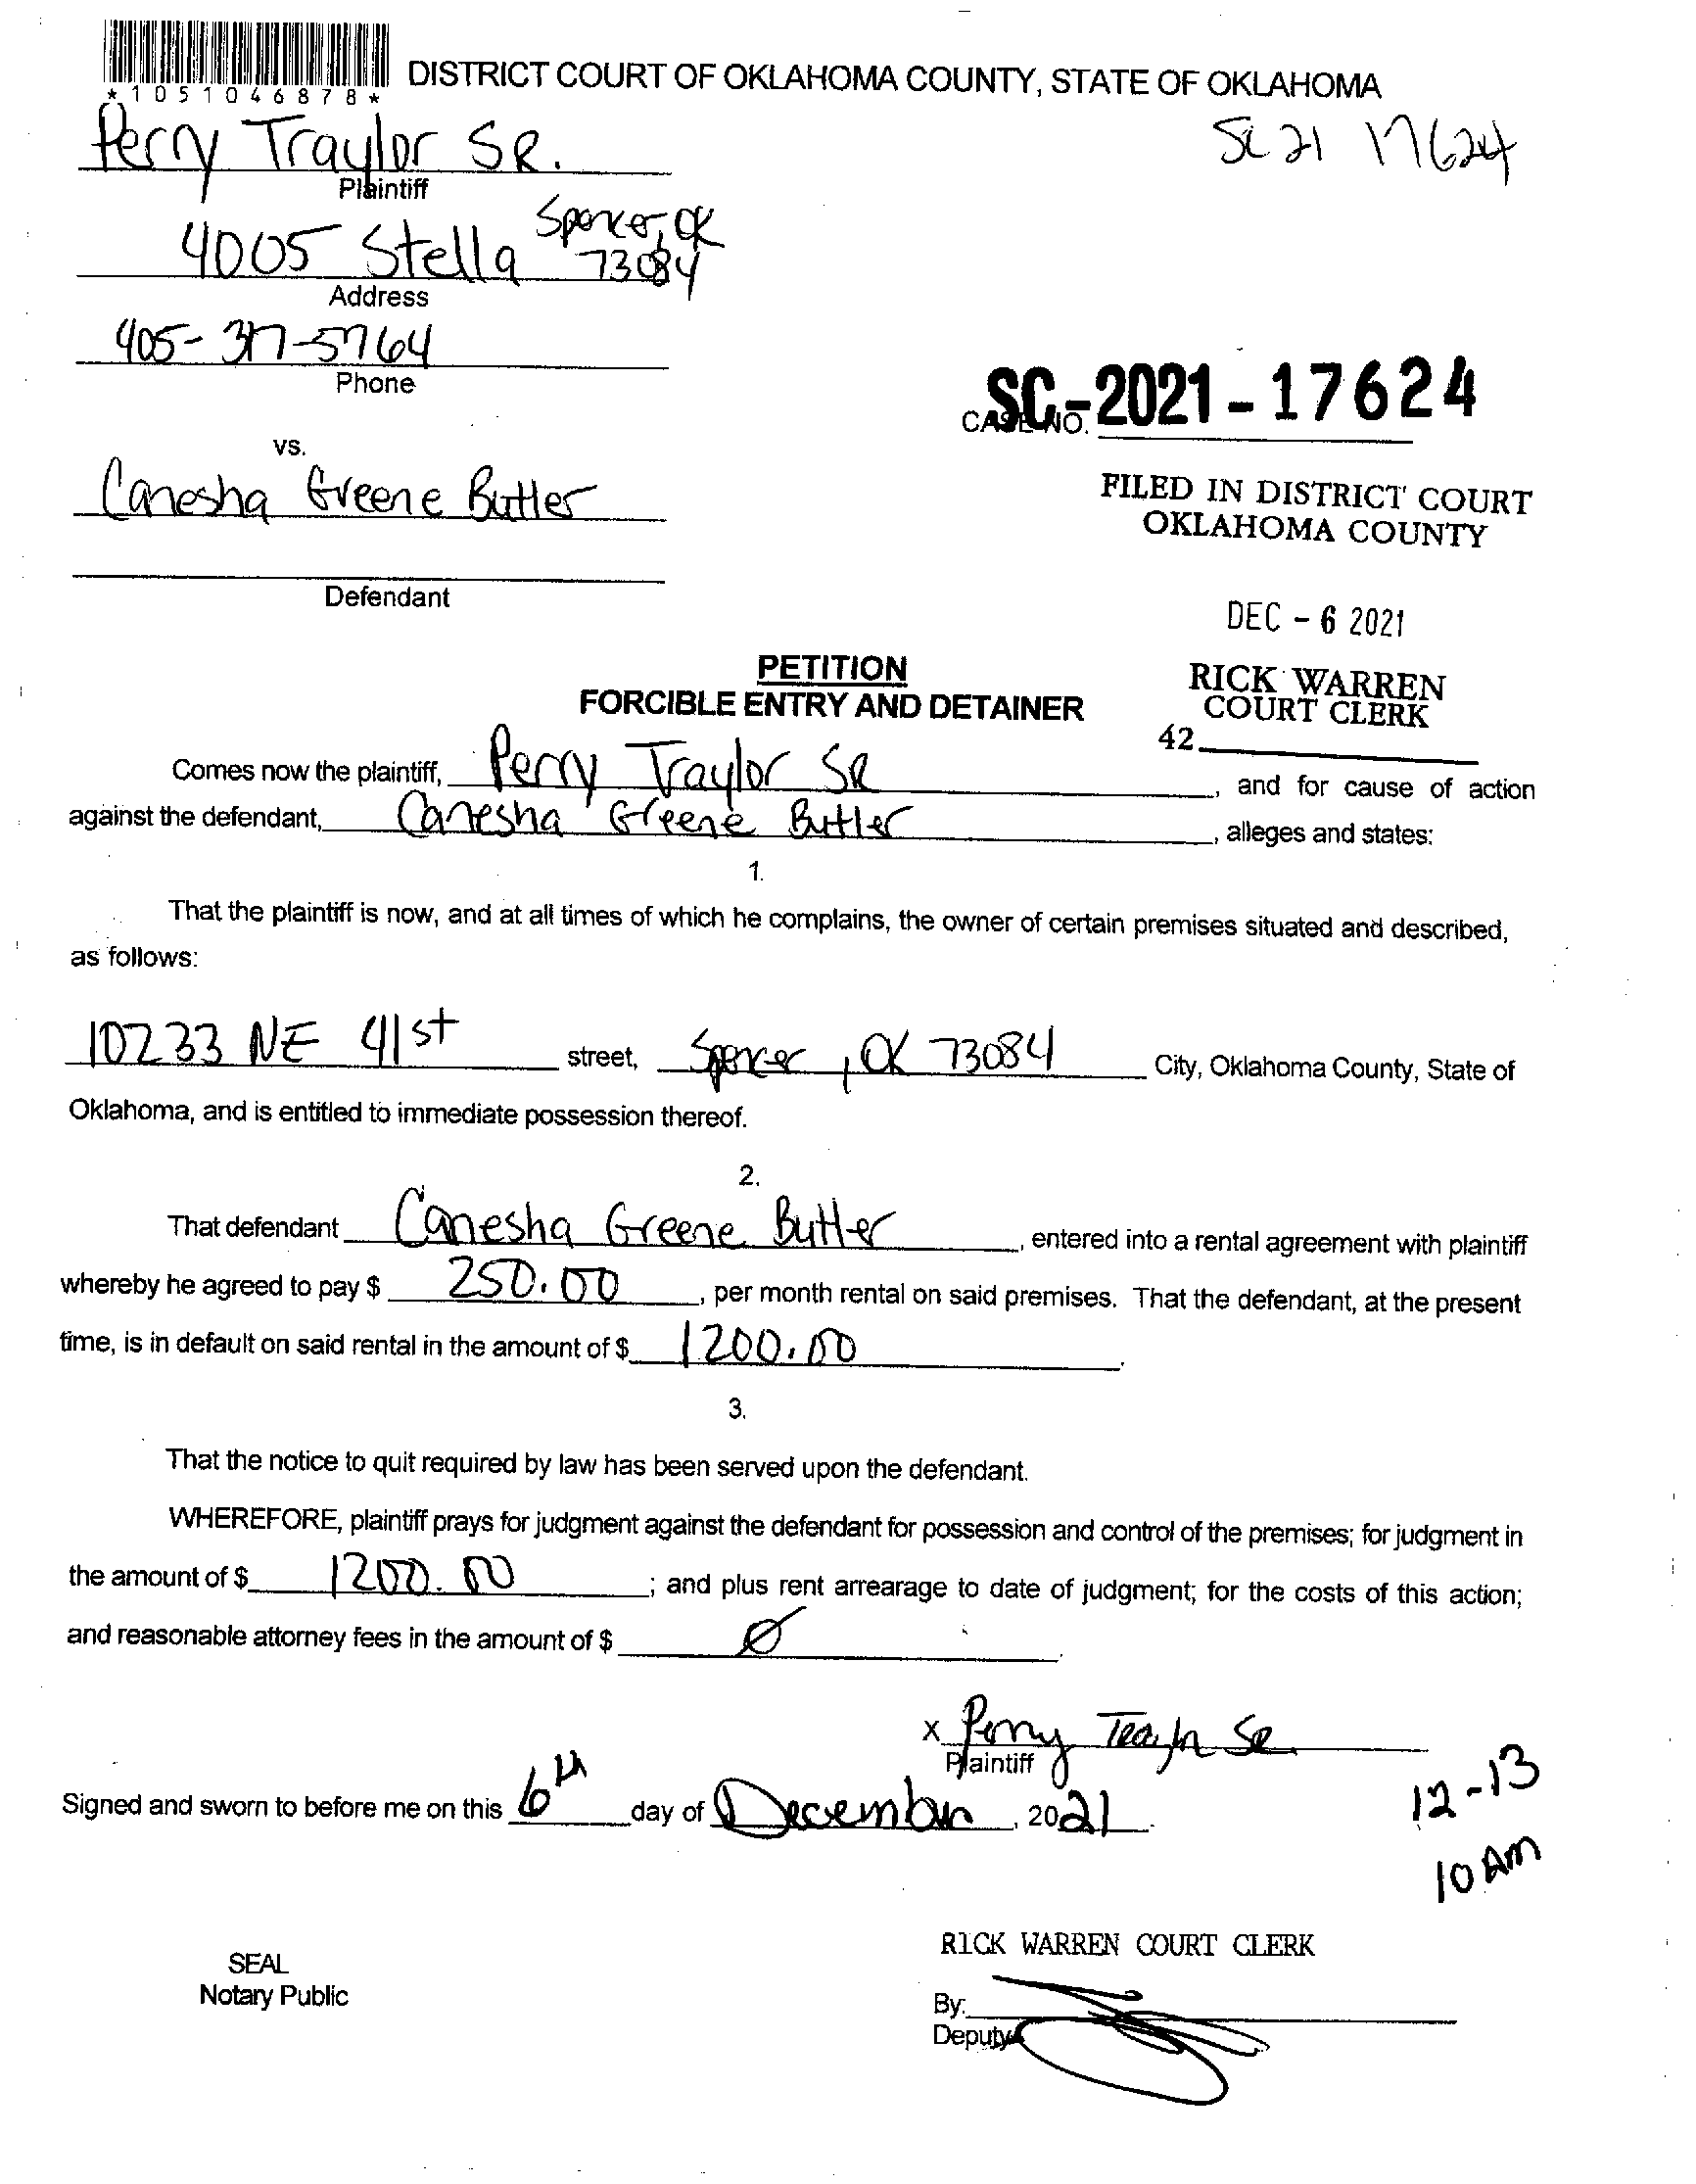 *1051046878*
DISTRICT COURT OF OKLAHOMA COUNTY, STATE OF OKLAHOMA
Perry Traylor SR.
SC 21 17624
Plaintiff
4005 Stella Spencer, OK 73084
Address
405-317-5764
Phone
CASE NO. SC-2021-17624
vs.
Canesha Greene Butler
FILED IN DISTRICT COURT
OKLAHOMA COUNTY
Defendant
DEC - 6 2021
PETITION
FORCIBLE ENTRY AND DETAINER
RICK WARREN
COURT CLERK
42
Comes now the plaintiff, Perry Traylor SR, and for cause of action
against the defendant, Canesha Greene Butler, alleges and states:
1.
That the plaintiff is now, and at all times of which he complains, the owner of certain premises situated and described,
as follows:
10233 NE 41st street, Spencer, OK 73084 City, Oklahoma County, State of
Oklahoma, and is entitled to immediate possession thereof.
2.
That defendant Canesha Greene Butler, entered into a rental agreement with plaintiff
whereby he agreed to pay $ 250.00, per month rental on said premises. That the defendant, at the present
time, is in default on said rental in the amount of $ 1200.00.
3.
That the notice to quit required by law has been served upon the defendant.
WHEREFORE, plaintiff prays for judgment against the defendant for possession and control of the premises; for judgment in
the amount of $ 1200.00; and plus rent arrearage to date of judgment; for the costs of this action;
and reasonable attorney fees in the amount of $ Ø.
X Perry Traylor SR
Plaintiff
Signed and sworn to before me on this 6th day of December, 2021.
12-13
10 AM
RICK WARREN COURT CLERK
SEAL
Notary Public
By:
Deputy